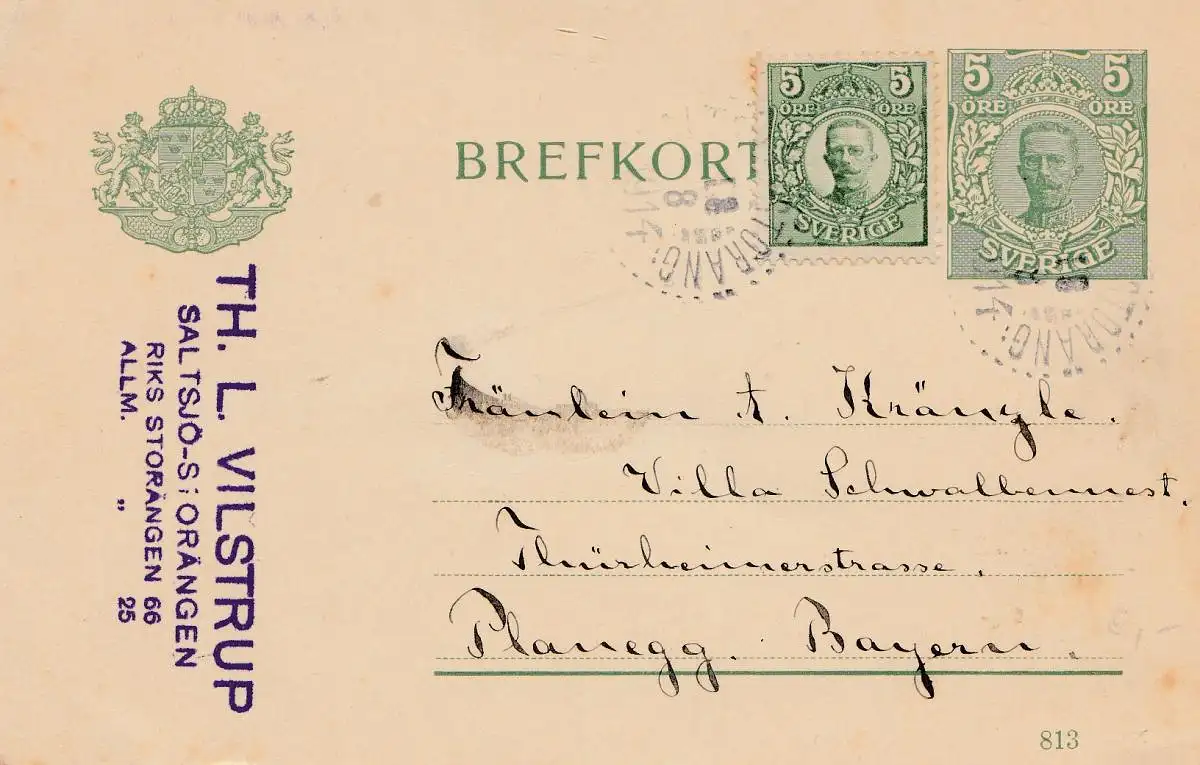 BREFKORT
5 5
ÖRE ÖRE
SVERIGE
5 5
ÖRE ÖRE
SVERIGE
TH. L. VILSTRUP
SALTSJÖ-STORÄNGEN
RIKS STORÄNGEN 66
ALLM. „ 25
Fräulein A. Krängle.
Villa Schwalbennest.
Thürheimerstrasse.
Planegg. Bayern.
813